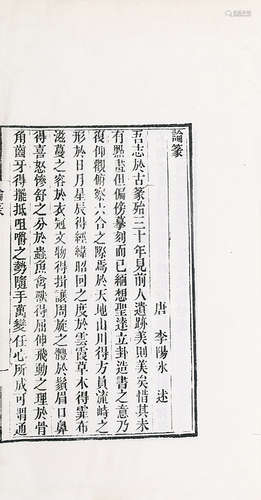 論篆
唐 李陽冰 述
吾志於古篆殆三十年見前人遺跡美則美矣惜其未
有點畫但偏傍摹刻而已緬想聖達立卦造書之意乃
復仰觀俯察六合之際焉於天地山川得方員流峙之
形於日月星辰得經緯昭回之度於雲霞草木得霏布
滋蔓之容於衣冠文物得揖讓周旋之體於鬚眉口鼻
得喜怒慘舒之分於蟲魚禽獸得屈伸飛動之理於骨
角齒牙得擺抵咀嚼之勢隨手萬變任心所成可謂通